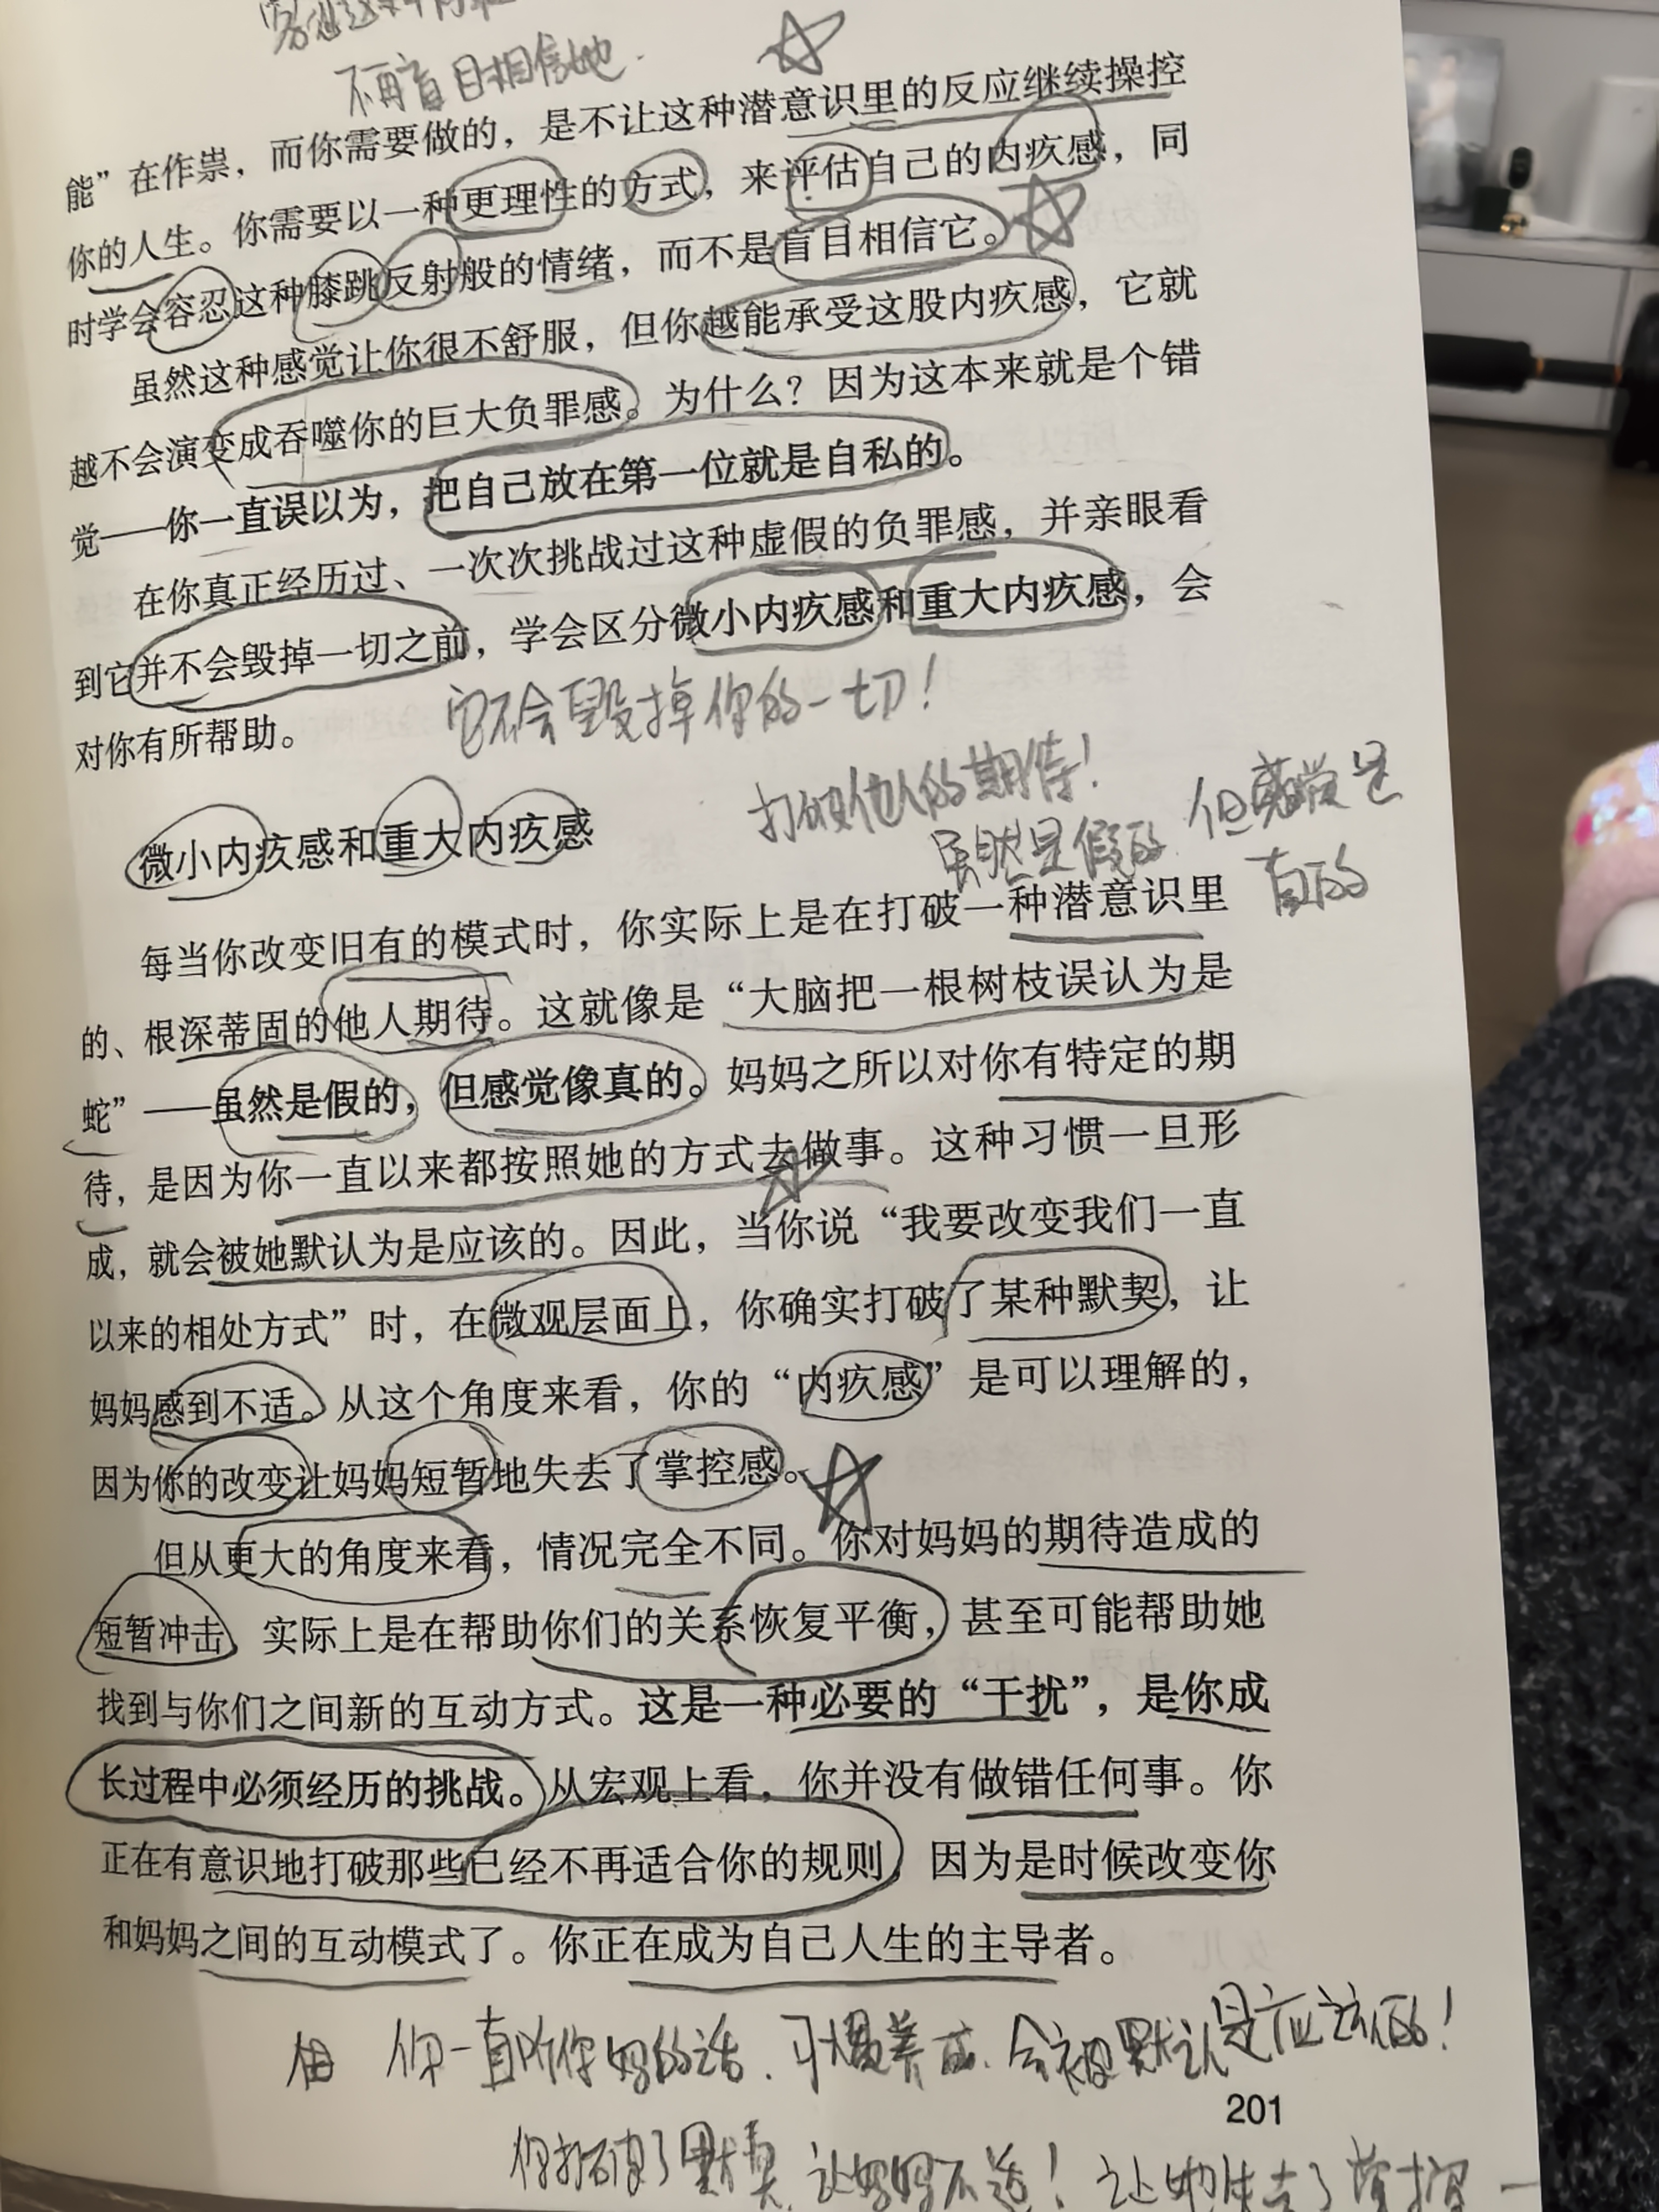 容忍这种内疚
不再盲目相信她.
能”在作祟，而你需要做的，是不让这种潜意识里的反应继续操控
你的人生。你需要以一种更理性的方式，来评估自己的内疚感，同
时学会容忍这种膝跳反射般的情绪，而不是盲目相信它。
虽然这种感觉让你很不舒服，但你越能承受这股内疚感，它就
越不会演变成吞噬你的巨大负罪感。为什么？因为这本来就是个错
觉——你一直误以为，把自己放在第一位就是自私的。
在你真正经历过、一次次挑战过这种虚假的负罪感，并亲眼看
到它并不会毁掉一切之前，学会区分微小内疚感和重大内疚感，会
对你有所帮助。
它不会毁掉你的一切！
打破他人的期待！
虽然是假的 但感觉是
真的
微小内疚感和重大内疚感
每当你改变旧有的模式时，你实际上是在打破一种潜意识里
的、根深蒂固的他人期待。这就像是“大脑把一根树枝误认为是
蛇”——虽然是假的，但感觉像真的。妈妈之所以对你有特定的期
待，是因为你一直以来都按照她的方式去做事。这种习惯一旦形
成，就会被她默认为是应该的。因此，当你说“我要改变我们一直
以来的相处方式”时，在微观层面上，你确实打破了某种默契，让
妈妈感到不适。从这个角度来看，你的“内疚感”是可以理解的，
因为你的改变让妈妈短暂地失去了掌控感。
但从更大的角度来看，情况完全不同。你对妈妈的期待造成的
短暂冲击，实际上是在帮助你们的关系恢复平衡，甚至可能帮助她
找到与你们之间新的互动方式。这是一种必要的“干扰”，是你成
长过程中必须经历的挑战。从宏观上看，你并没有做错任何事。你
正在有意识地打破那些已经不再适合你的规则，因为是时候改变你
和妈妈之间的互动模式了。你正在成为自己人生的主导者。
你一直听你妈的话、习惯养成、会被默认是应该的！
201
你打破了默契，让妈妈不适！让她失去了掌控